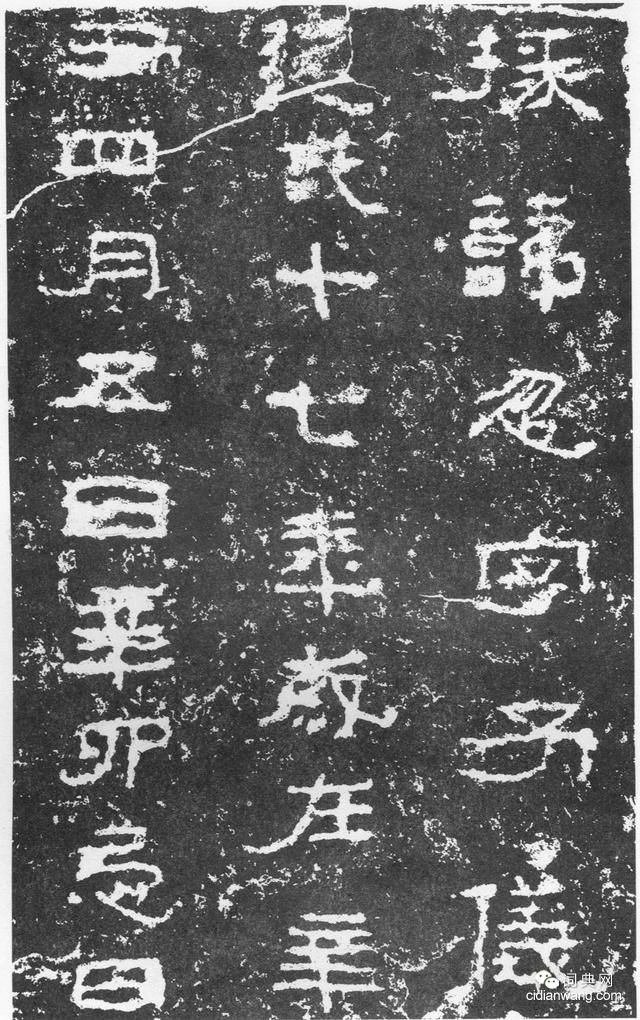 掾諱忽字子儀
建武十七年歲在辛
丑四月五日辛卯忌日
词典网
cidianwang.com